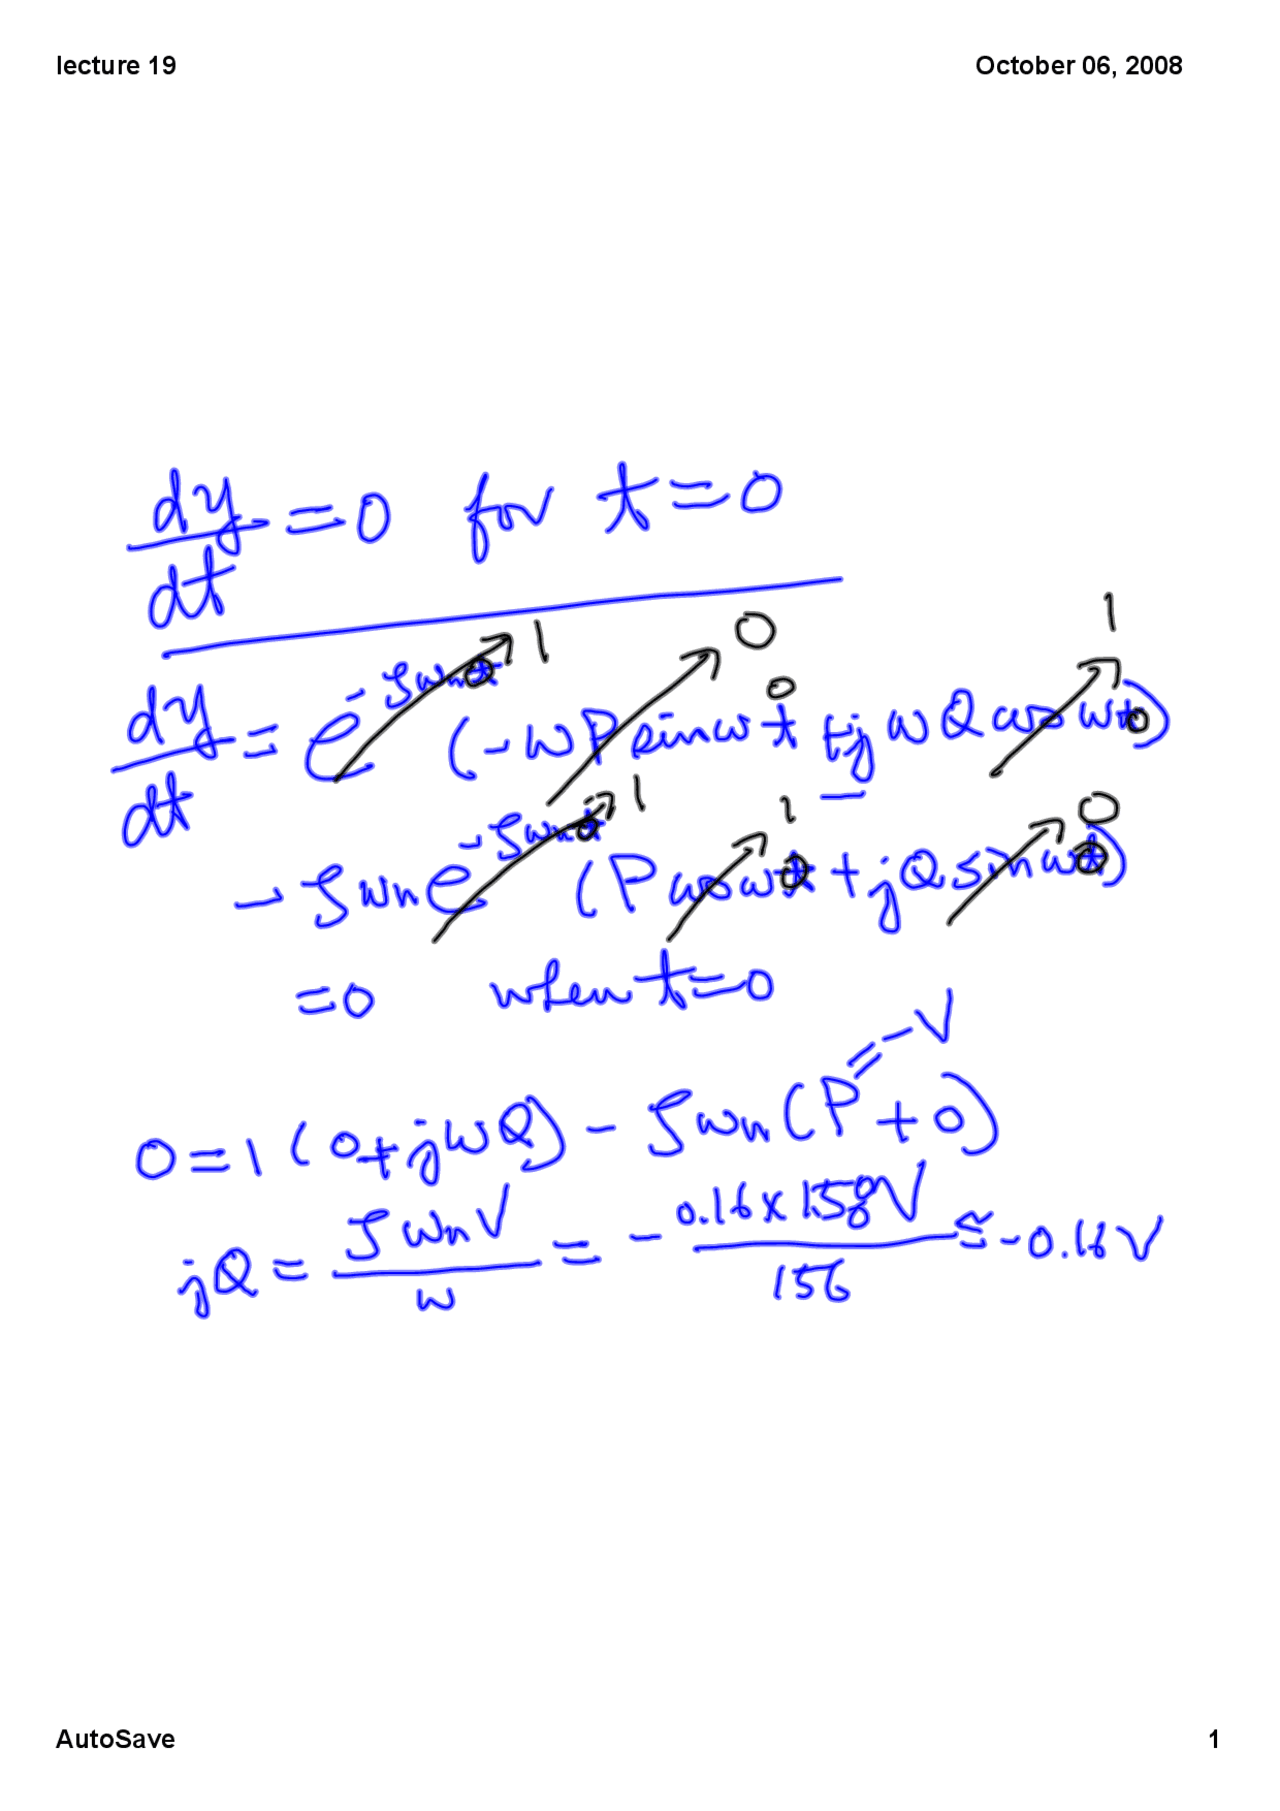 lecture 19
October 06, 2008
dy/dt = 0 for t = 0
dy/dt = e^(-ζωn0) → 1 (-ωP sin ωt → 0 0 + jωQ cos ω0 → 1)
- ζωn e^(-ζωn0) → 1 (P cos ω0 → 1 + jQ sin ω0 → 0)
= 0 when t = 0
0 = 1 (0 + jωQ) - ζωn (P = -V + 0)
jQ = ζωnV/ω = - 0.16 x 158V/156 ≅ -0.16V
AutoSave
1